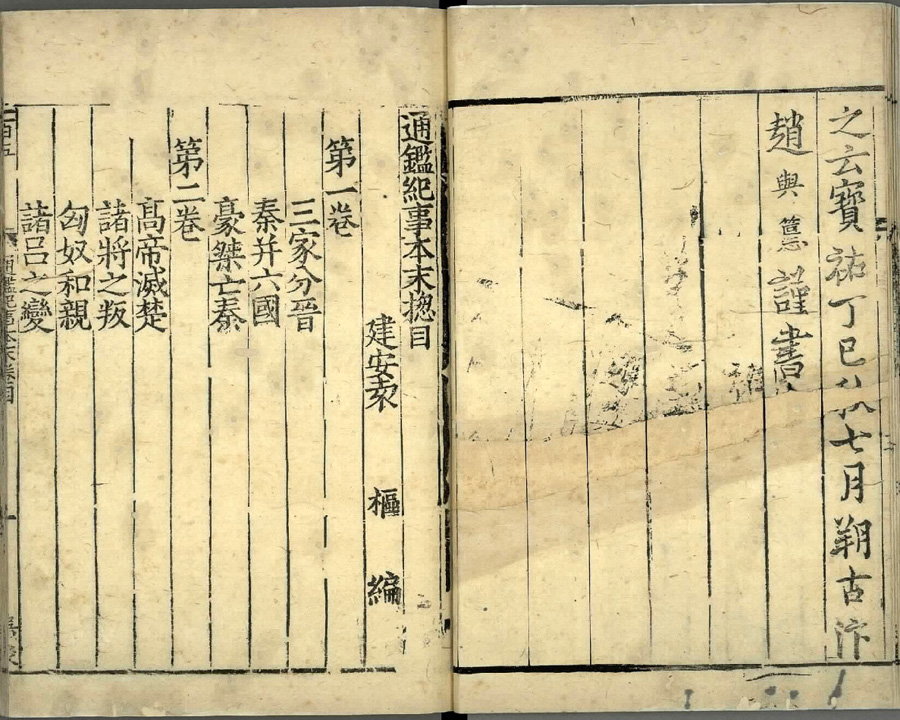 之云寶祐丁巳秋七月朔古汴
趙與𥲅謹書
通鑑紀事本末揔目
建安袁樞編
第一卷
三家分晉
秦并六國
豪桀亡秦
第二卷
高帝滅楚
諸將之叛
匈奴和親
諸呂之變